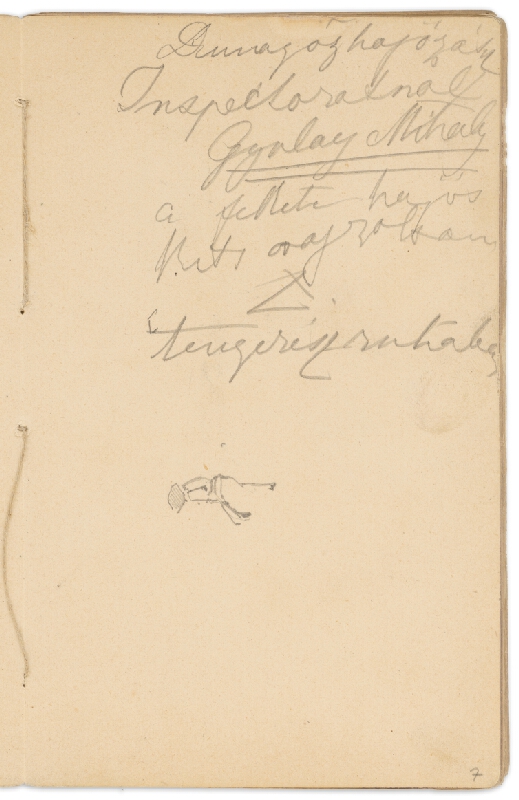 Dunagőzhajózási
Inspectoratnál
Gyulay Mihály
a fekete hajós
kit rajzoltam
tengerész ruhába
7